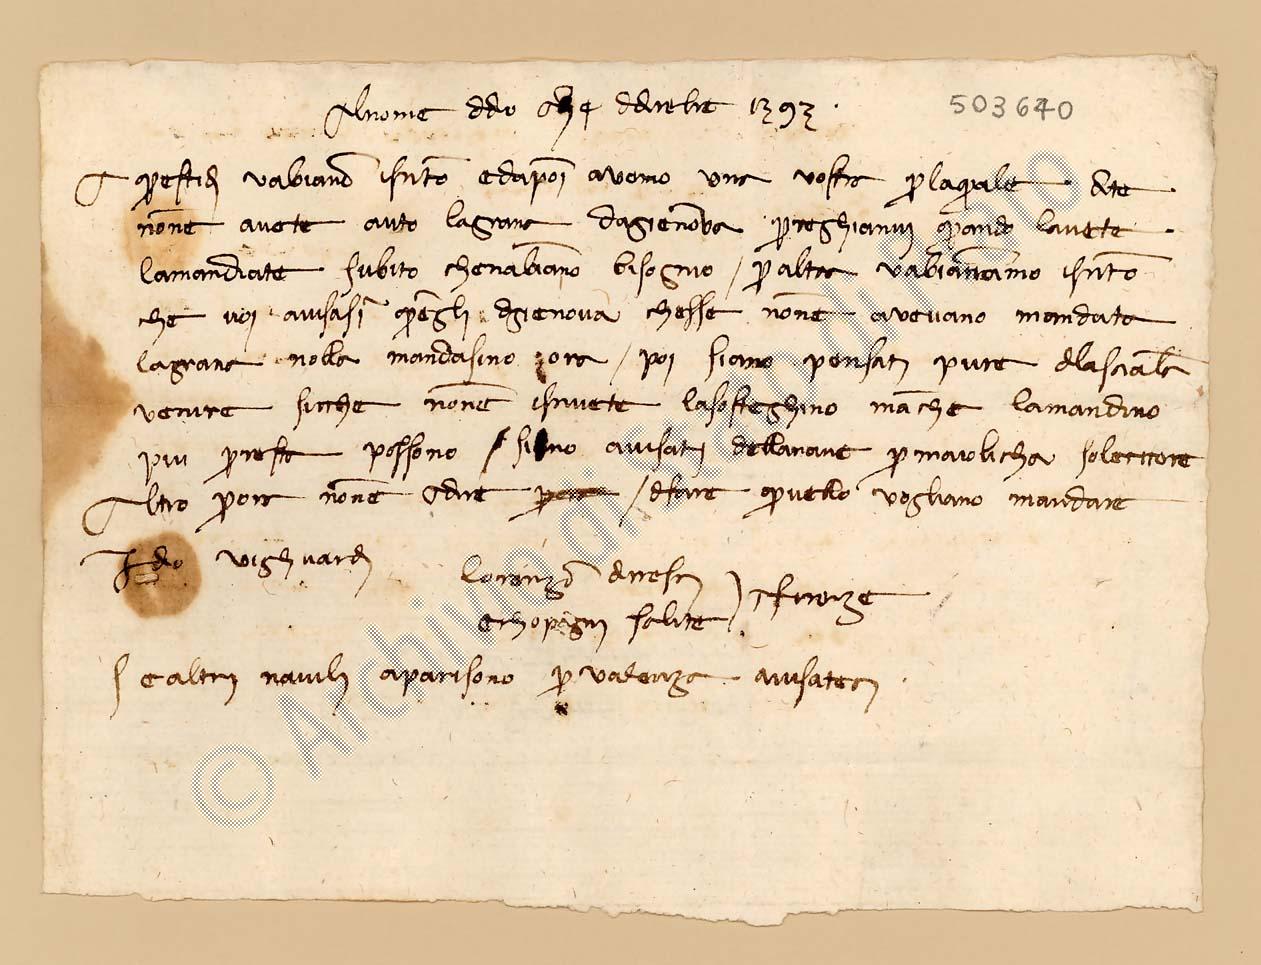 Al nome ddio adi 4 ddicebre 1393.
503640
questi dì v abiano iscritto e dapoi avemo una vostra per la quale dite
none avete auto la grana da gienova preghianvi quando l avete
la mandiate subito che n abiano bisogno / per altra v abiano iscritto
che voi avisasi quegli di gienova chesse none avevano mandata
la grana nolla mandasino ora / poi siamo pensati pure di lasciarla
venire sicche none iscrivete la sosteghino anche la mandino
piu presta possono / siano avisati della nave per maiolicha
Altro per ora none a dire / di fare quello vogliano mandare
Idio vi ghuardi
Lorenzo
e chopagni salute / firenze
Se altri navili aparisono per valenza avisateci
© Archivio di Stato di Prato